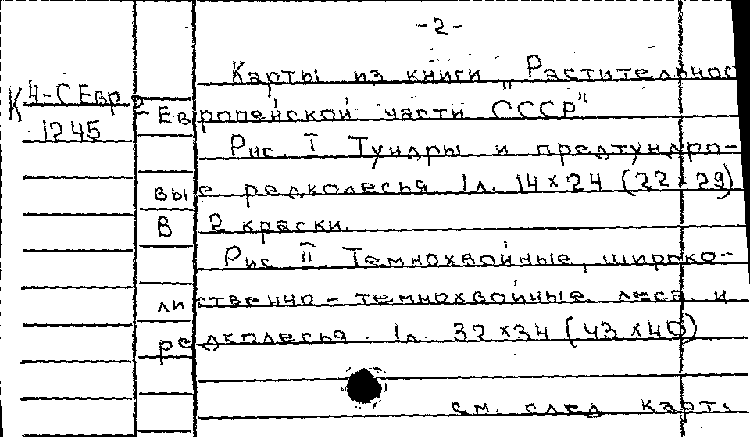 -2-
Карты из книги "Растительнос
К4-СЕвр.
2-Европейской части СССР"
1245
Рис. I Тундры и предтундро-
вые редколесья 1л. 14×24 (22×29)
В 2 краски.
Рис II Темнохвойные, широко-
лиственно-темнохвойные леса и
редколесья. 1л. 32×34 (43×40)
см. след карт.